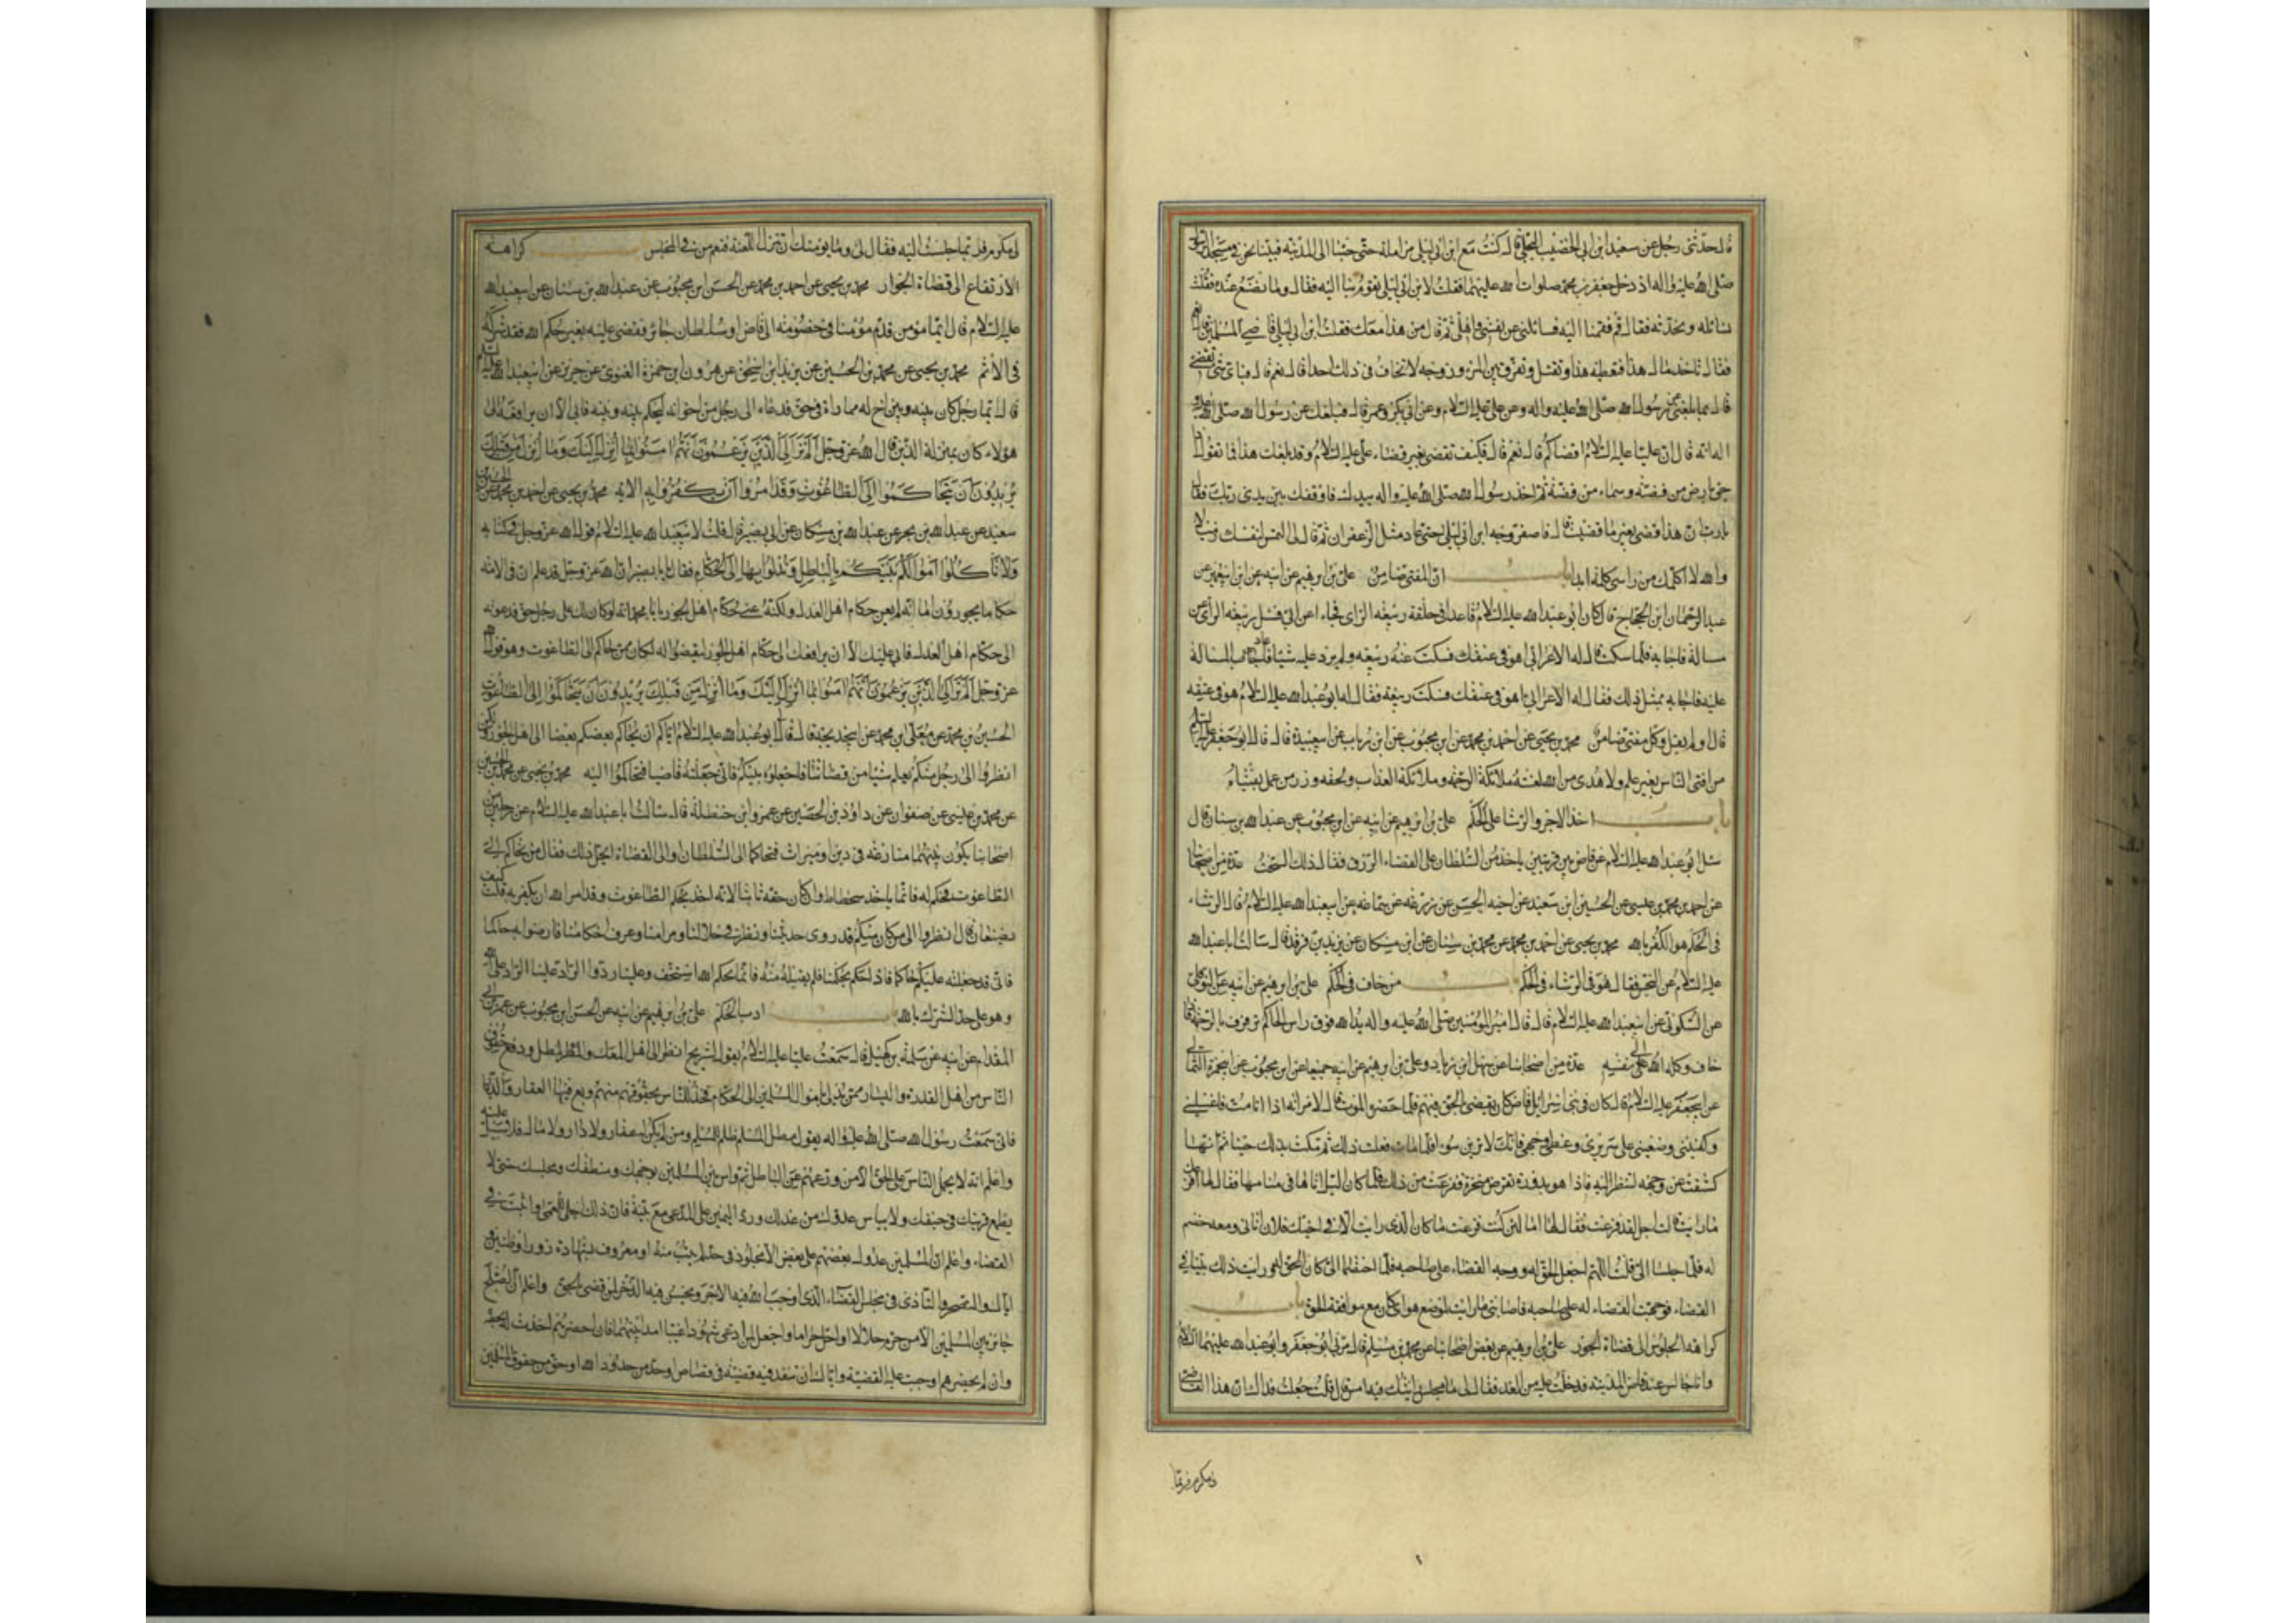 قال حدثنى رجل عن سعيد ابن ابى الخضيب البجلى قال كنت مع ابن ابى ليلى مزامله حتى جئنا الى المدينه فبينا نحن فى مسجد الرسول
صلى الله عليه واله اذ دخل جعفر بن محمد صلوات الله عليهما فقلت لابن ابى ليلى تقوم بنا اليه فقال وما نصنع عنده فقلت
نسائله ونحدثه فقال قم فقمنا اليه فسائلنى عن نفسى واهلى ثم قال من هذا معك فقلت ابن ابى ليلى قاضى المسلمين
فقال تاخذ مال هذا فتعطيه هذا وتقتل وتفرق بين المرء وزوجه لا تخاف فى ذلك احدا قال نعم قال فباى شى تقضى
قال بما بلغنى عن رسول الله صلى الله عليه واله وعن على عليه السلام وعن ابى بكر وعمر قال فبلغك عن رسول الله صلى الله عليه
اله انه قال ان عليا عليه السلام اقضاكم قال نعم قال فكيف تقضى بغير قضاء على عليه السلام وقد بلغك هذا فما تقول
جئ بارض من فضة وسماء من فضة ثم اخذ رسول الله صلى الله عليه واله بيدك فاوقفك بين يدى ربك فقال
يا رب ان هذا قضى بغير ما قضيت قال فاصفر وجه ابن ابى ليلى حتى عاد مثل الزعفران ثم قال لى التمس لنفسك زميلا
والله لا اكلمك من راسى كلمة ابدا باب ان المفتى ضامن على بن ابرهيم عن ابيه عن ابن ابى عمير عن
عبد الرحمان ابن الحجاج قال كان ابو عبد الله عليه السلام قاعدا فى حلقة ربيعه الراى فجاء اعرابى فسئل ربيعه الراى عن
مسالة فاجابه فلما سكت قال له الاعرابى اهو فى عنقك فسكت عنه ربيعه ولم يرد عليه شيئا فاعاد المسالة
عليه فاجابه بمثل ذلك فقال له الاعرابى اهو فى عنقك فسكت ربيعة فقال له ابو عبد الله عليه السلام هو فى عنقه
قال ولم يقل وكل مفتى ضامن محمد بن يحيى عن احمد بن محمد عن ابن محبوب عن ابن رباب عن ابى عبيدة قال قال ابو جعفر عليه السلام
من افتى الناس بغير علم ولا هدى من الله لعنته ملائكة الرحمه وملائكة العذاب ولحقه وزر من عمل بفتياه
باب اخذ الاجر والرشا على الحكم على بن ابرهيم عن ابيه عن ابن محبوب عن عبد الله بن سنان قال
سئل ابو عبد الله عليه السلام عن قاض بين قريتين ياخذ من السلطان على القضاء الرزق فقال ذلك السحت عدة من اصحابنا
عن احمد بن محمد بن عيسى عن الحسين ابن سعيد عن اخيه الحسن عن زرعه عن سماعه عن ابى عبد الله عليه السلام قال الرشاء
فى الحكم هو الكفر بالله محمد بن يحيى عن احمد بن محمد عن محمد بن سنان عن ابن مسكان عن يزيد بن فرقد قال سالت ابا عبد الله
عليه السلام عن السحت فقال هو فى الرشاء فى الحكم باب من خاف فى الحكم على بن ابرهيم عن ابيه عن النوفلى
عن السكونى عن ابى عبد الله عليه السلام قال قال امير المؤمنين صلى الله عليه واله يد الله فوق راس الحاكم ترفرف بالرحمة فاذا
خاف وكله الله الى نفسه عدة من اصحابنا عن سهل ابن زياد وعلى بن ابرهيم عن ابيه جميعا عن ابن محبوب عن ابى حمزة الثمالى
عن ابى جعفر عليه السلام قال كان فى بنى اسرائيل قاض كان يقضى بالحق فيهم فلما حضره الموت قال لامراته اذا انا مت فاغسلينى
وكفنينى وضعينى على سريرى وغطى وجهى فانك لا ترين سوءا فلما مات فعلت ذلك ثم مكثت بذلك حينا ثم انها
كشفت عن وجهه لتنظر اليه فاذا هو بدودة تقرض منخره ففزعت من ذلك فلما كان الليل اتاها فى منامها فقال لها افزعك
ما رايت قالت اجل لقد فزعت فقال لها اما لئن كنت فزعت ما كان الذى رايت الا فى اخيك فلان اتانى ومعه خصم
له فلما جلسا الى قلت اللهم اجعل الحق له ووجه القضاء على صاحبه فلما اختصما الى كان الحق له ورايت ذلك بينا فى
القضاء فوجهت القضاء له على صاحبه فاصابنى ما رايت لموضع هواى كان مع موافقة الحق باب
كراهة الجلوس الى قضاة الجور على بن ابرهيم عن بعض اصحابنا عن محمد بن مسلم قال مر بى ابو جعفر وابو عبد الله عليهما السلام
وانا جالس عند قاض المدينه فدخلت عليه من الغد فقال لى ما مجلس رايتك فيه امس قال قلت جعلت فداك ان هذا القاضى
لى مكرم فربما
لى مكرم فربما جلست اليه فقال لى وما يؤمنك ان تنزل اللعنة فتعم من فى المجلس باب كراهية
الارتفاع الى قضاة الجوار محمد بن يحيى عن احمد بن محمد عن الحسن ابن محبوب عن عبد الله بن سنان عن ابى عبد الله
عليه السلام قال ايما مؤمن قدم مؤمنا فى خصومة الى قاض او سلطان جائر فقضى عليه بغير حكم الله فقد شركه
فى الاثم محمد بن يحيى عن محمد بن الحسين عن يزيد ابن اسحق عن هرون ابن حمزة الغنوى عن حريز عن ابى عبد الله عليه السلام
قال ايما رجل كان بينه وبين اخ له مماراة فى حق فدعاه الى رجل من اخوانه ليحكم بينه وبينه فابى الا ان يرافعه الى
هؤلاء كان بمنزلة الذين قال الله عز وجل الم تر الى الذين يزعمون انهم امنوا بما انزل اليك وما انزل من قبلك
يريدون ان يتحاكموا الى الطاغوت وقد امروا ان يكفروا به الايه محمد بن يحيى عن احمد بن محمد عن الحسين بن
سعيد عن عبد الله بن بحر عن عبد الله بن مسكان عن ابى بصير قال قلت لابى عبد الله عليه السلام قول الله عز وجل فى كتابه
ولا تاكلوا اموالكم بينكم بالباطل وتدلوا بها الى الحكام فقال يابا بصير ان الله عز وجل قد علم ان فى الامة
حكاما يجورون اما انه لم يعن حكام اهل العدل ولكنه عنى حكام اهل الجور يابا محمد انه لو كان لك على رجل حق فدعوته
الى حكام اهل العدل فابى عليك الا ان يرافعك الى حكام اهل الجور ليقضوا له لكان ممن حاكم الى الطاغوت وهو قول الله
عز وجل الم تر الى الذين يزعمون انهم امنوا بما انزل اليك وما انزل من قبلك يريدون ان يتحاكموا الى الطاغوت
الحسين بن محمد عن معلى ابن محمد عن ابى خديجة قال قال لى ابو عبد الله عليه السلام اياكم ان يحاكم بعضكم بعضا الى اهل الجور ولكن
انظروا الى رجل منكم يعلم شيئا من قضائنا فاجعلوه بينكم فانى جعلته قاضيا فتحاكموا اليه محمد بن يحيى عن محمد بن الحسين
عن محمد بن عيسى عن صفوان عن داؤد بن الحصين عن عمر ابن حنظلة قال سالت ابا عبد الله عليه السلام عن رجلين من
اصحابنا يكون بينهما منازعه فى دين او ميراث فتحاكما الى السلطان والى القضاة ايحل ذلك فقال من تحاكم الى
الطاغوت فحكم له فانما ياخذ سحتا وان كان حقه ثابتا لانه اخذ بحكم الطاغوت وقد امر الله ان يكفر به قلت كيف
يصنعان قال انظروا الى من كان منكم قد روى حديثنا ونظر فى حلالنا وحرامنا وعرف احكامنا فارضوا به حاكما
فانى قد جعلته عليكم حاكما فاذا حكم بحكمنا فلم يقبله منه فانما بحكم الله استخف وعلينا رد والراد علينا الراد على الله
وهو على حد الشرك بالله باب ادب الحكم على بن ابرهيم عن ابيه عن الحسن ابن محبوب عن عمرو بن ابى
المقدام عن ابيه عن سلمة بن كهيل قال سمعت عليا عليه السلام يقول لشريح انظر الى اهل المعك والمطل ودفع حقوق
الناس من اهل القدرة واليسار ممن يدلى باموال المسلمين الى الحكام فخذ للناس بحقوقهم منهم وبع فيها العقار والديار
فانى سمعت رسول الله صلى الله عليه واله يقول مطل المسلم ظلم للمسلم ومن لم يكن له عقار ولا دار ولا مال فلا سبيل عليه
واعلم انه لا يحمل الناس على الحق الا من وزعهم عن الباطل ثم واس بين المسلمين بوجهك ومنطقك ومجلسك حتى لا
يطمع قريبك فى حيفك ولا يياس عدوك من عدلك ورد اليمين على المدعى مع بينة فان ذلك اجلى للعمى واثبت فى
القضاء واعلم ان المسلمين عدول بعضهم على بعض الا مجلود فى حد لم يتب منه او معروف بشهادة زور او ظنين
واياك والتضجر والتاذى فى مجلس القضاء الذى اوجب الله فيه الاجر ويحسن فيه الذخر لمن قضى بالحق واعلم ان الصلح
جائز بين المسلمين الا من حرم حلالا او احل حراما واجعل لمن ادعى شهودا غيبا امدا بينهما فان احضرهم اخذت له بحقه
وان لم يحضرهم اوجبت عليه القضية واياك ان تنفذ فيه قضية فى قصاص او حد من حدود الله او حق من حقوق المسلمين